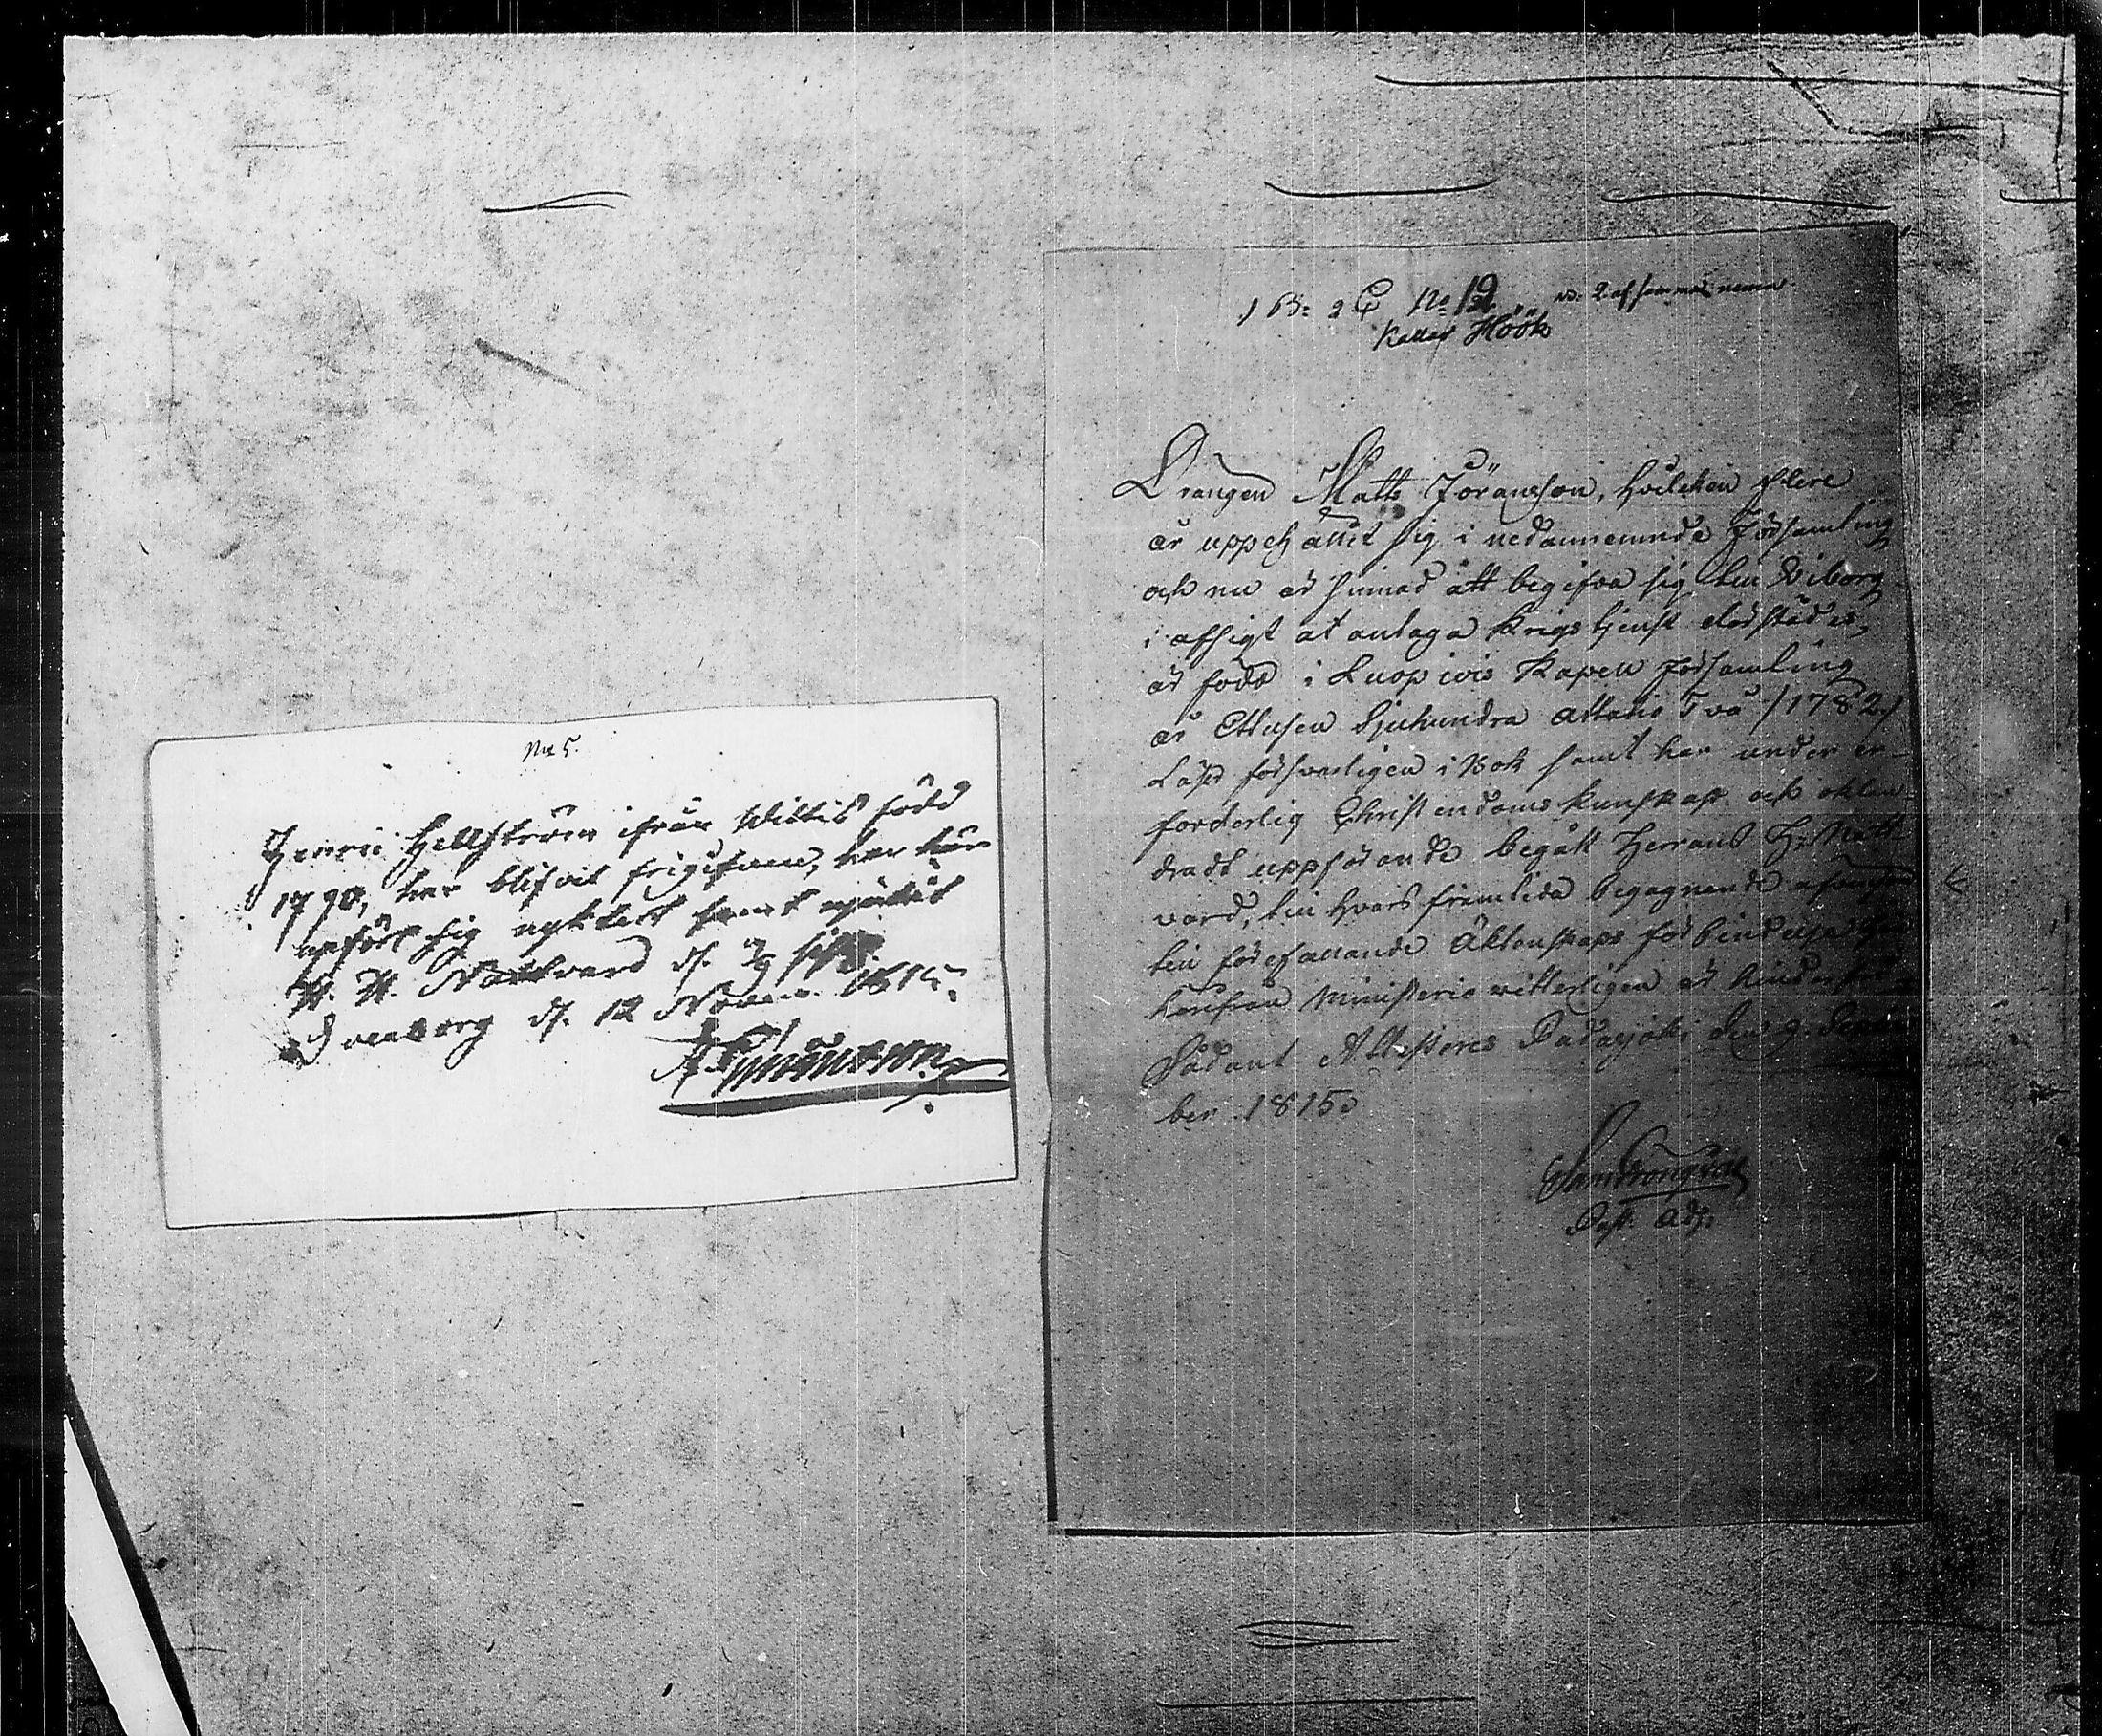 No 5.
Henric Hellström ifrån Wittis född
1790, har blifvit frigifven, har här
upfört sig nyktert samt njutit
H. H. Nattvard d.
d. 12 Novem. 1815.
1 B: 2 C No 12 2 af samma namn
Kallas Höök
Drängen Matts Jöransson, hvilcken flere
år uppehållit sig i nedannemnde Församling
och nu är sinnad att begifva sig till Viborg
i afsigt at antaga Krigstjenst derstädes,
är född i Luopiois Kapell Församling
år Ettusen Sjuhundra Attatio Två /1782/
Läser försvarligen i Bok samt har under er-
forderlig Christendoms kunskap och oklan-
dradt uppförande begått Herrans H: Natt
vard, till hvars framtida begagnande
till förefallande Äktenskaps förbindelse
härifrån Ministerio vitterligen är hinderfri
Sådant Attesteres Padasjoki den 9. Decem
ber 1815.
Past. Adj.